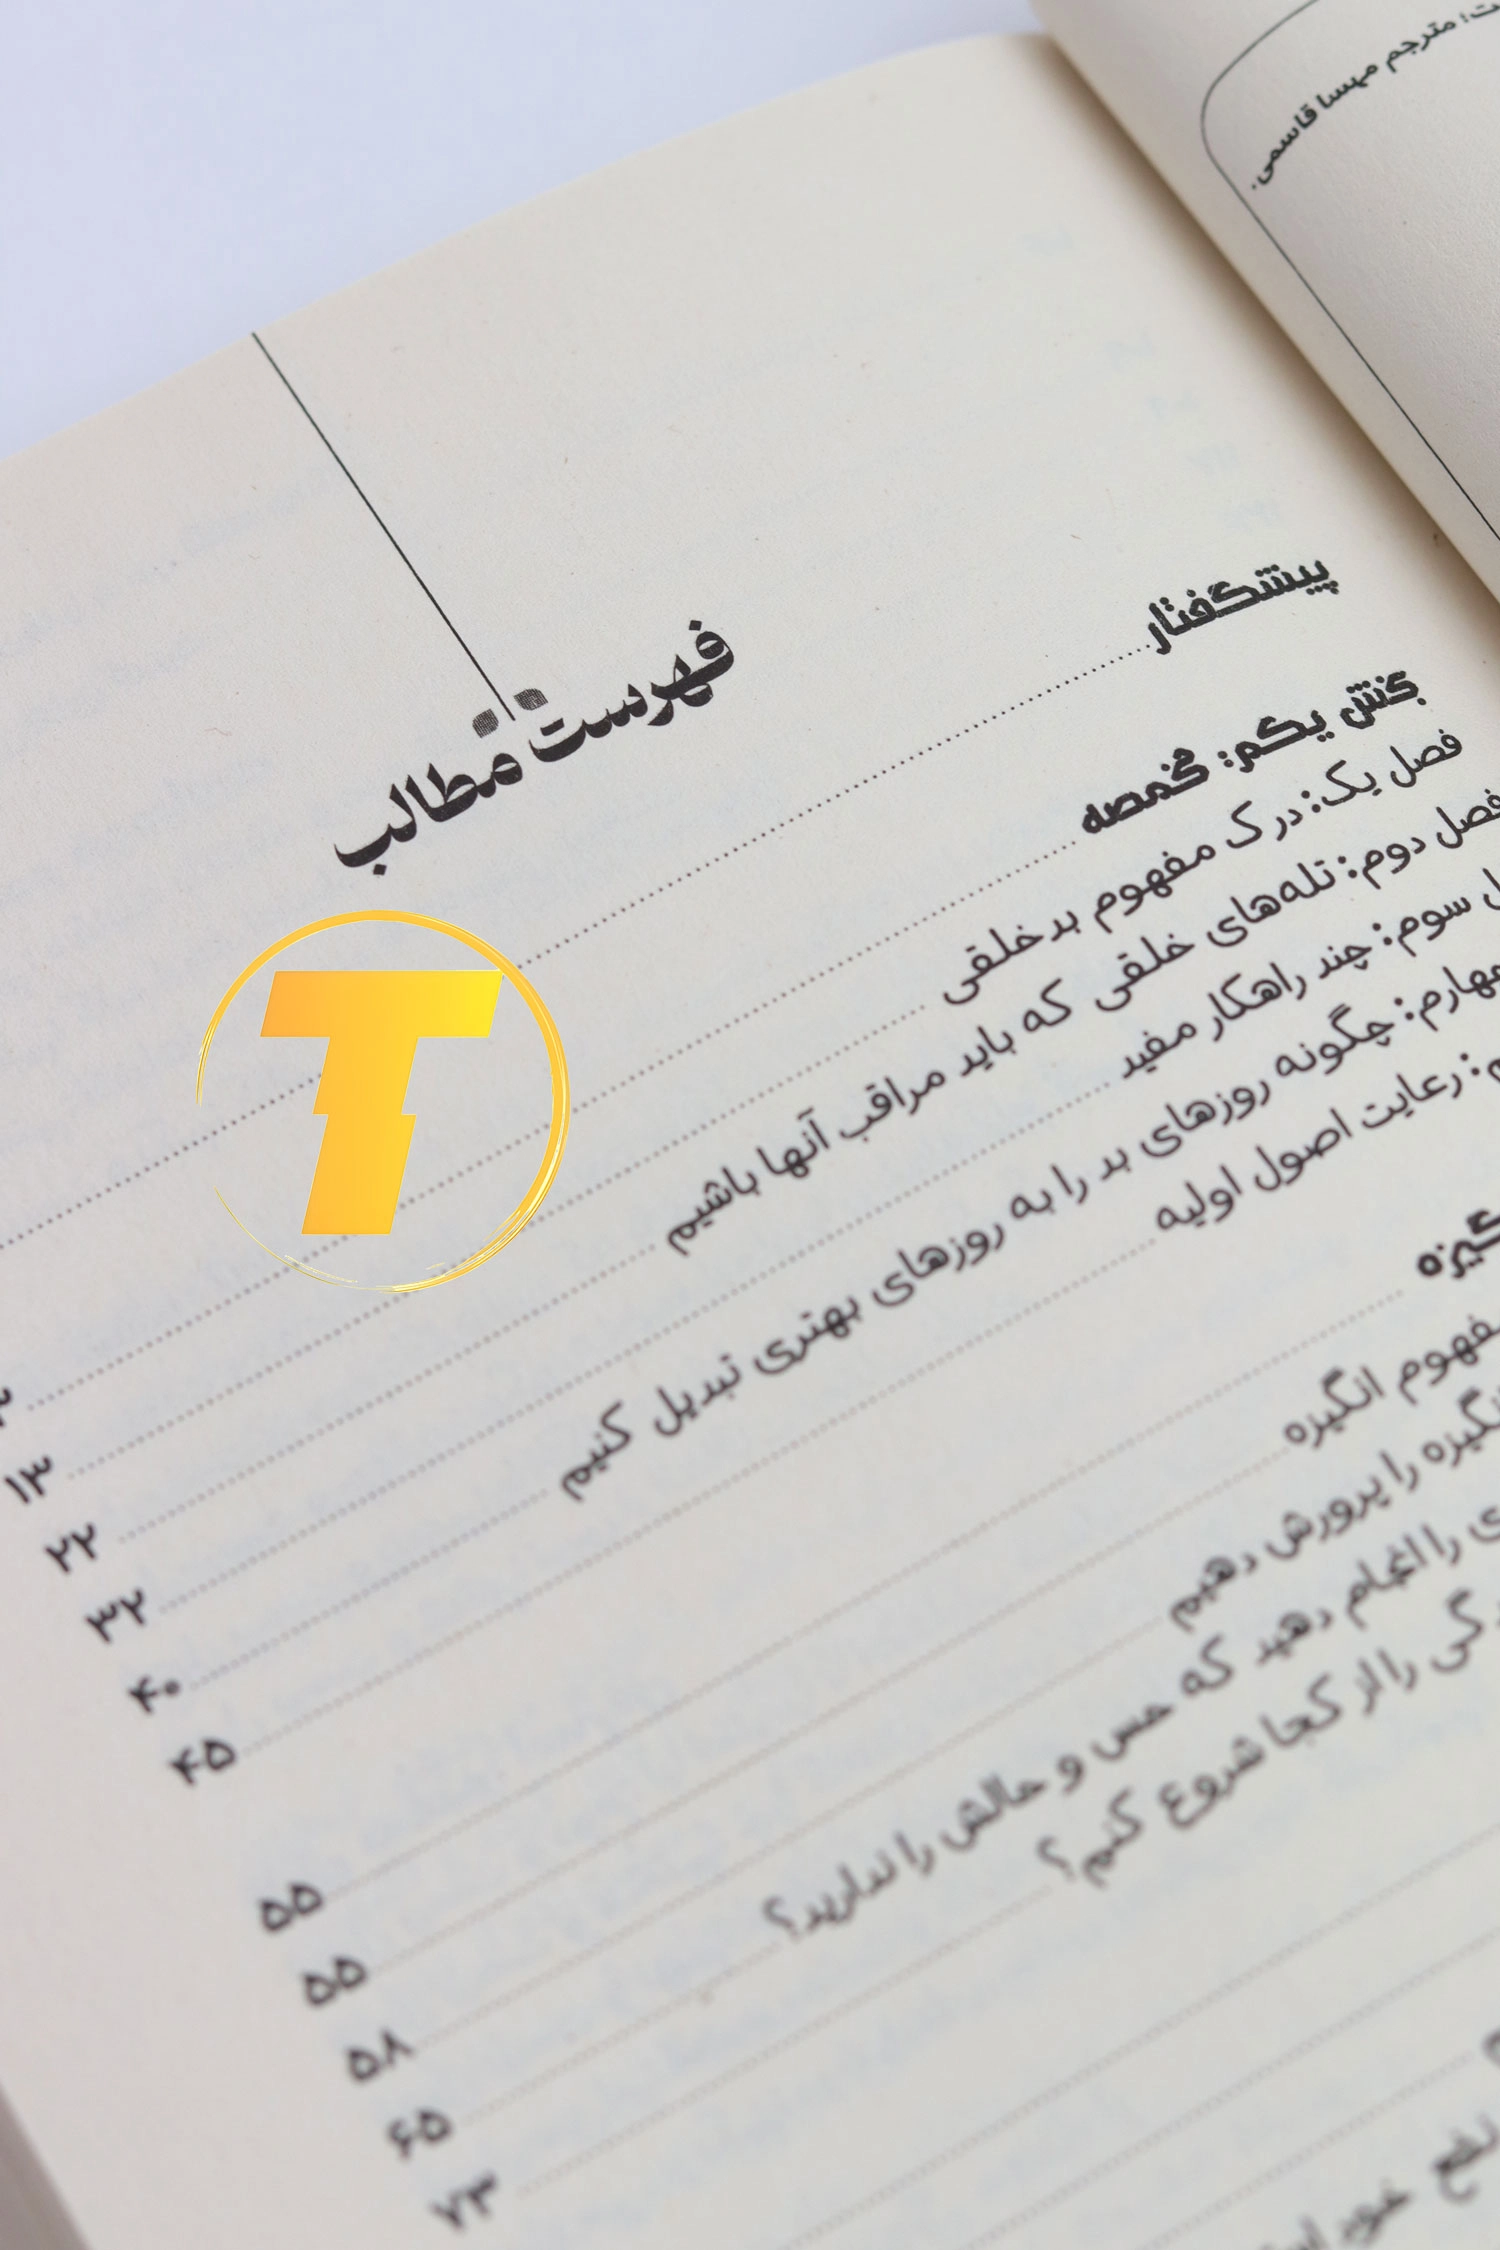 مترجم مهسا قاسمی.
فهرست مطالب
پیشگفتار
بخش یکم: مخمصه
فصل یک: درک مفهوم بدخلقی ۱۳
فصل دوم: تله‌های خلقی که باید مراقب آنها باشیم ۲۲
سوم: چند راهکار مفید ۳۲
چگونه روزهای بد را به روزهای بهتری تبدیل کنیم ۴۰
رعایت اصول اولیه ۴۵
۵۵
مفهوم انگیزه ۵۵
را پرورش دهیم ۵۸
را انجام دهید که حس و حالش را ندارید؟ ۶۵
را از کجا شروع کنیم؟ ۷۳
T